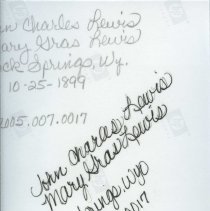 n Charles Lewis
ary Gras Lewis
ck Springs, Wy.
10-25-1899
005.007.0017
John Charles Lewis
Mary Gras Lewis
Springs, Wyo
0017